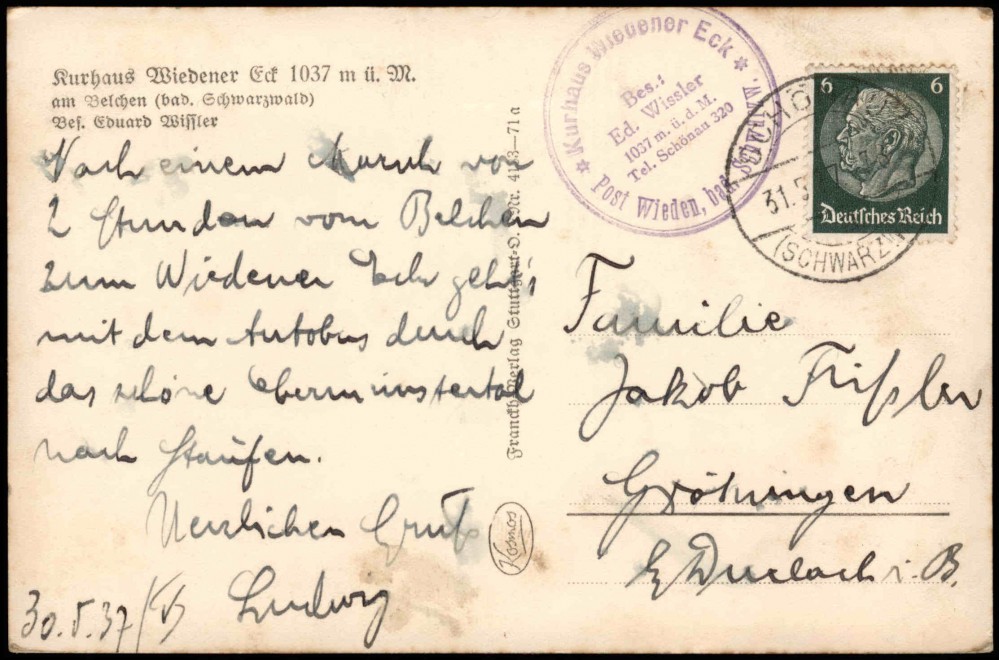 Kurhaus Wiedener Eck 1037 m ü. M.
am Belchen (bad. Schwarzwald)
Bes. Eduard Wissler
Nach einem Marsch von
2 Stunden vom Belchen
zum Wiedener Eck geht's
mit dem Autobus durch
das schöne Obermünstertal
nach Staufen.
Herzlichen Gruß
Ludwig
30.5.37
Franckh-Verlag Stuttgart-O.
Kosmos
Kurhaus Wiedener Eck
Bes.:
Ed. Wissler
1037 m. ü. d. M.
Tel. Schönau 320
Post Wieden, bad. Schwarzw.
31.5
(SCHWARZW
6 6
Deutsches Reich
Familie
Jakob
Grötzingen
Durlach i. B.